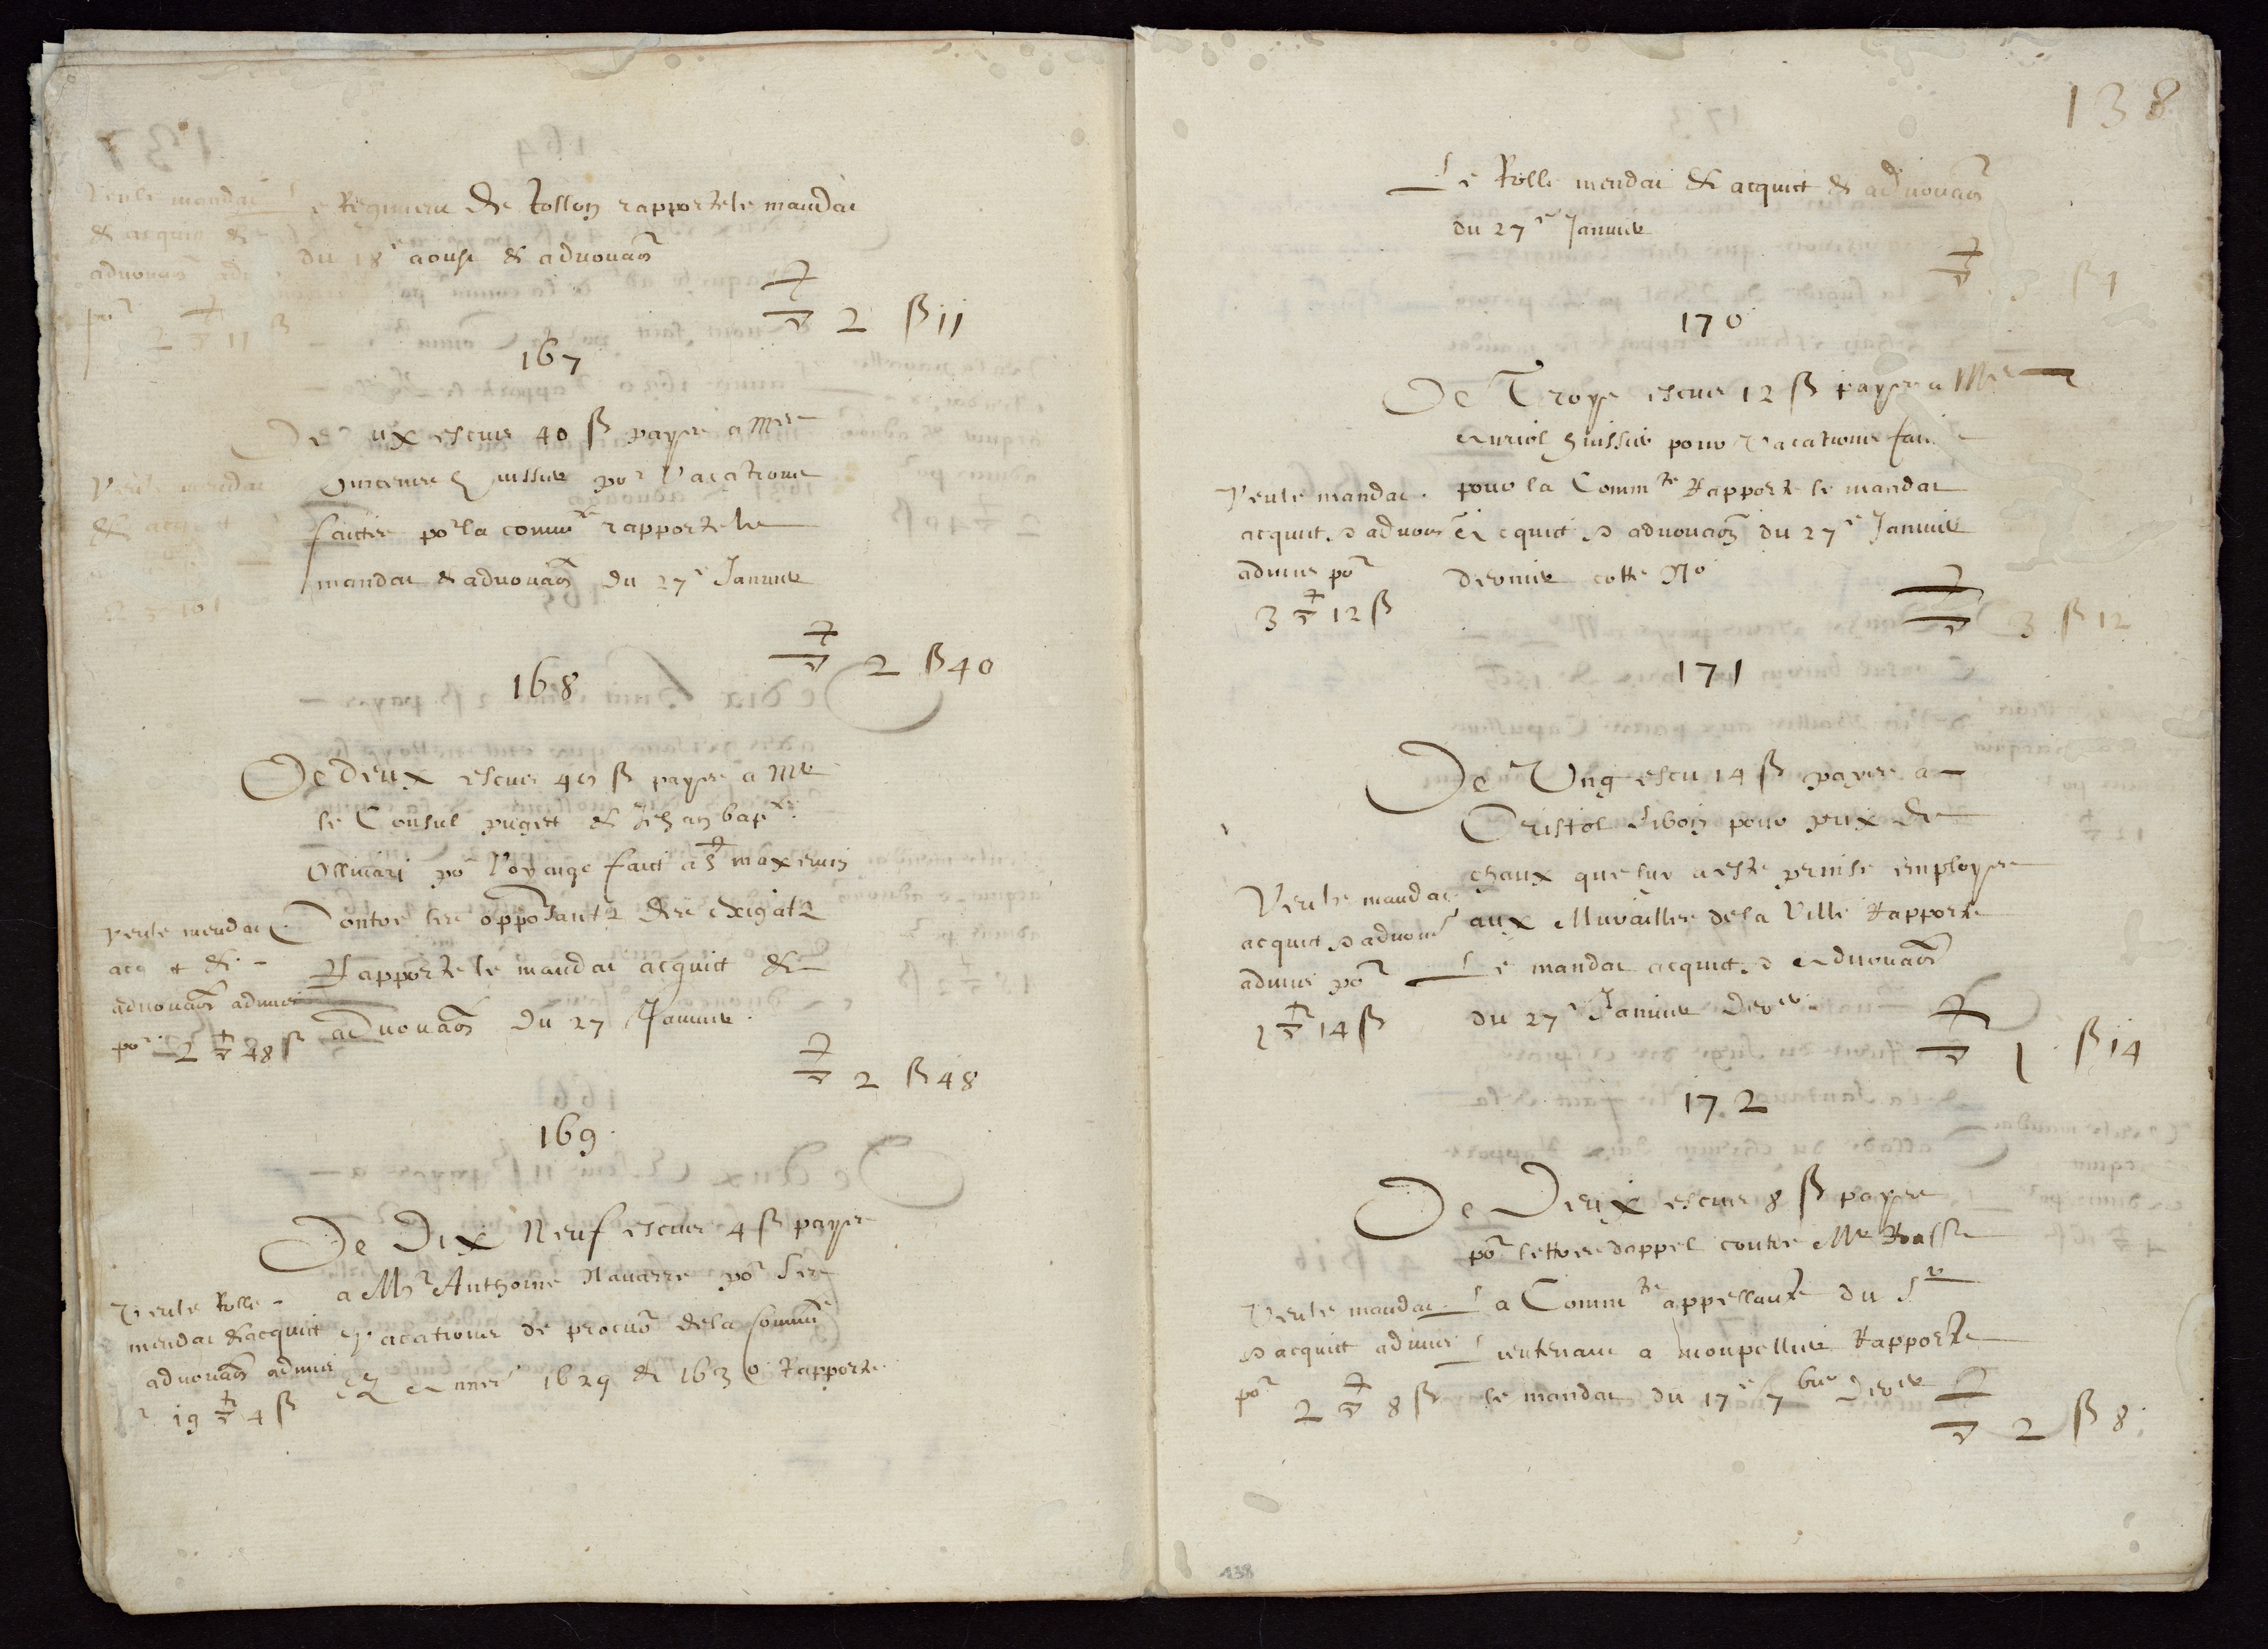 Veu le mandat
& acquit &
advouaon
por 2 11 ß
Le Regiment de Tollon rapporte le mandat
du 18e aoust & advouaon
2 ß 11
167
De Deux escus 40 ß payés a Mre
huissier por vacations
faictes por la commte rapporte le
mandat & advouaon du 27e Janvier
2 ß 40
168
De deux escus 40 ß payés a Mr
le Consul puget & Jehan bapte
Ollivari por voyaige faict a St maxemin
Contre les opposants des exigats
Rapporte le mandat acquit &
advouaon du 27 Janvier
Veu le mandat
acq t &
advouaon admis
por 2 48 ß
2 ß 48
169
De Dix Neuf escus 4 ß payés
a Mr Anthoine Navarre por ses
vacations de procur de la commte
annés 1629 & 1630 Rapporte
Veu le Rolle
mandat & acquit
advouaon admis
r 19 4 ß
138
Le Rolle mandat & acquit & advouaon
du 27e Janvier
ß 4
170
De Troys escus 12 ß payés a Mre
huissier pour vacations fai
pour la Commte Rapporte le mandat
acquit & advouaon du 27e Janvier
dernier cotte No
Veu le mandat
acquit & advouaon
admis por
3 12 ß
3 ß 12
171
De Ung escu 14 ß payés a
Cristol pour prix de
chaux que luy a esté prinse employée
aux Murailles de la Ville Rapporte
Le mandat acquit & advouaon
du 27e Janvier Derer
Veu le mandat
acquit & advouaon
admis por
1 14 ß
1 ß 14
172
De Deux escus 8 ß payés
por lettres dappel contre Mr
La Commte appellante du Sr
Lieutenant a monpellier Rapporte
le mandat du 17e 7bre Derer
Veu le mandat
& acquit admis
por 2 8 ß
2 ß 8
138